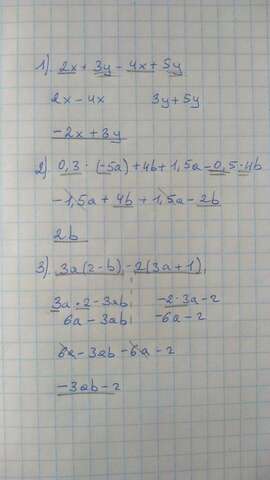 1) 2x + 3y - 4x + 5y
2x - 4x 3y + 5y
-2x + 8y
2) 0,3 · (-5a) + 4b + 1,5a - 0,5 · 4b
-1,5a + 4b + 1,5a - 2b
2b
3) 3a(2-b) - 2(3a+1)
3a · 2 - 3ab -2·3a - 2
6a - 3ab -6a - 2
6a - 3ab - 6a - 2
-3ab - 2